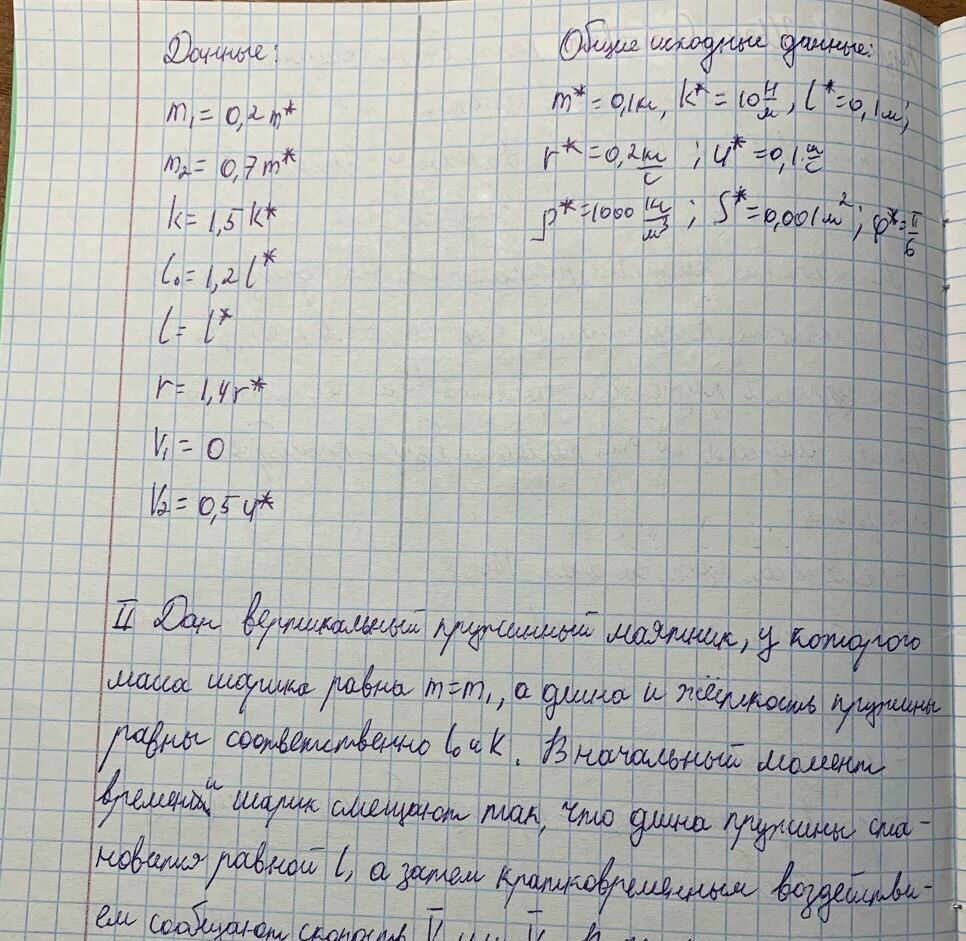 Данные:
m₁ = 0,2 m*
m₂ = 0,7 m*
k = 1,5 k*
l₀ = 1,2 l*
l = l*
r = 1,4 r*
V₁ = 0
V₂ = 0,5 u*
Общие исходные данные:
m* = 0,1 кг, k* = 10 Н/м, l* = 0,1 м;
r* = 0,2 кг/с ; u* = 0,1 м/с
ρ* = 1000 кг/м³ ; S* = 0,001 м² ; φ* = π/6
II Дан вертикальный пружинный маятник, у которого
масса шарика равна m=m₁, а длина и жёсткость пружины
равны соответственно l₀ и k. В начальный момент
времени шарик смещают так, что длина пружины ста-
новится равной l, а затем кратковременным воздействи-
ем сообщают скорость